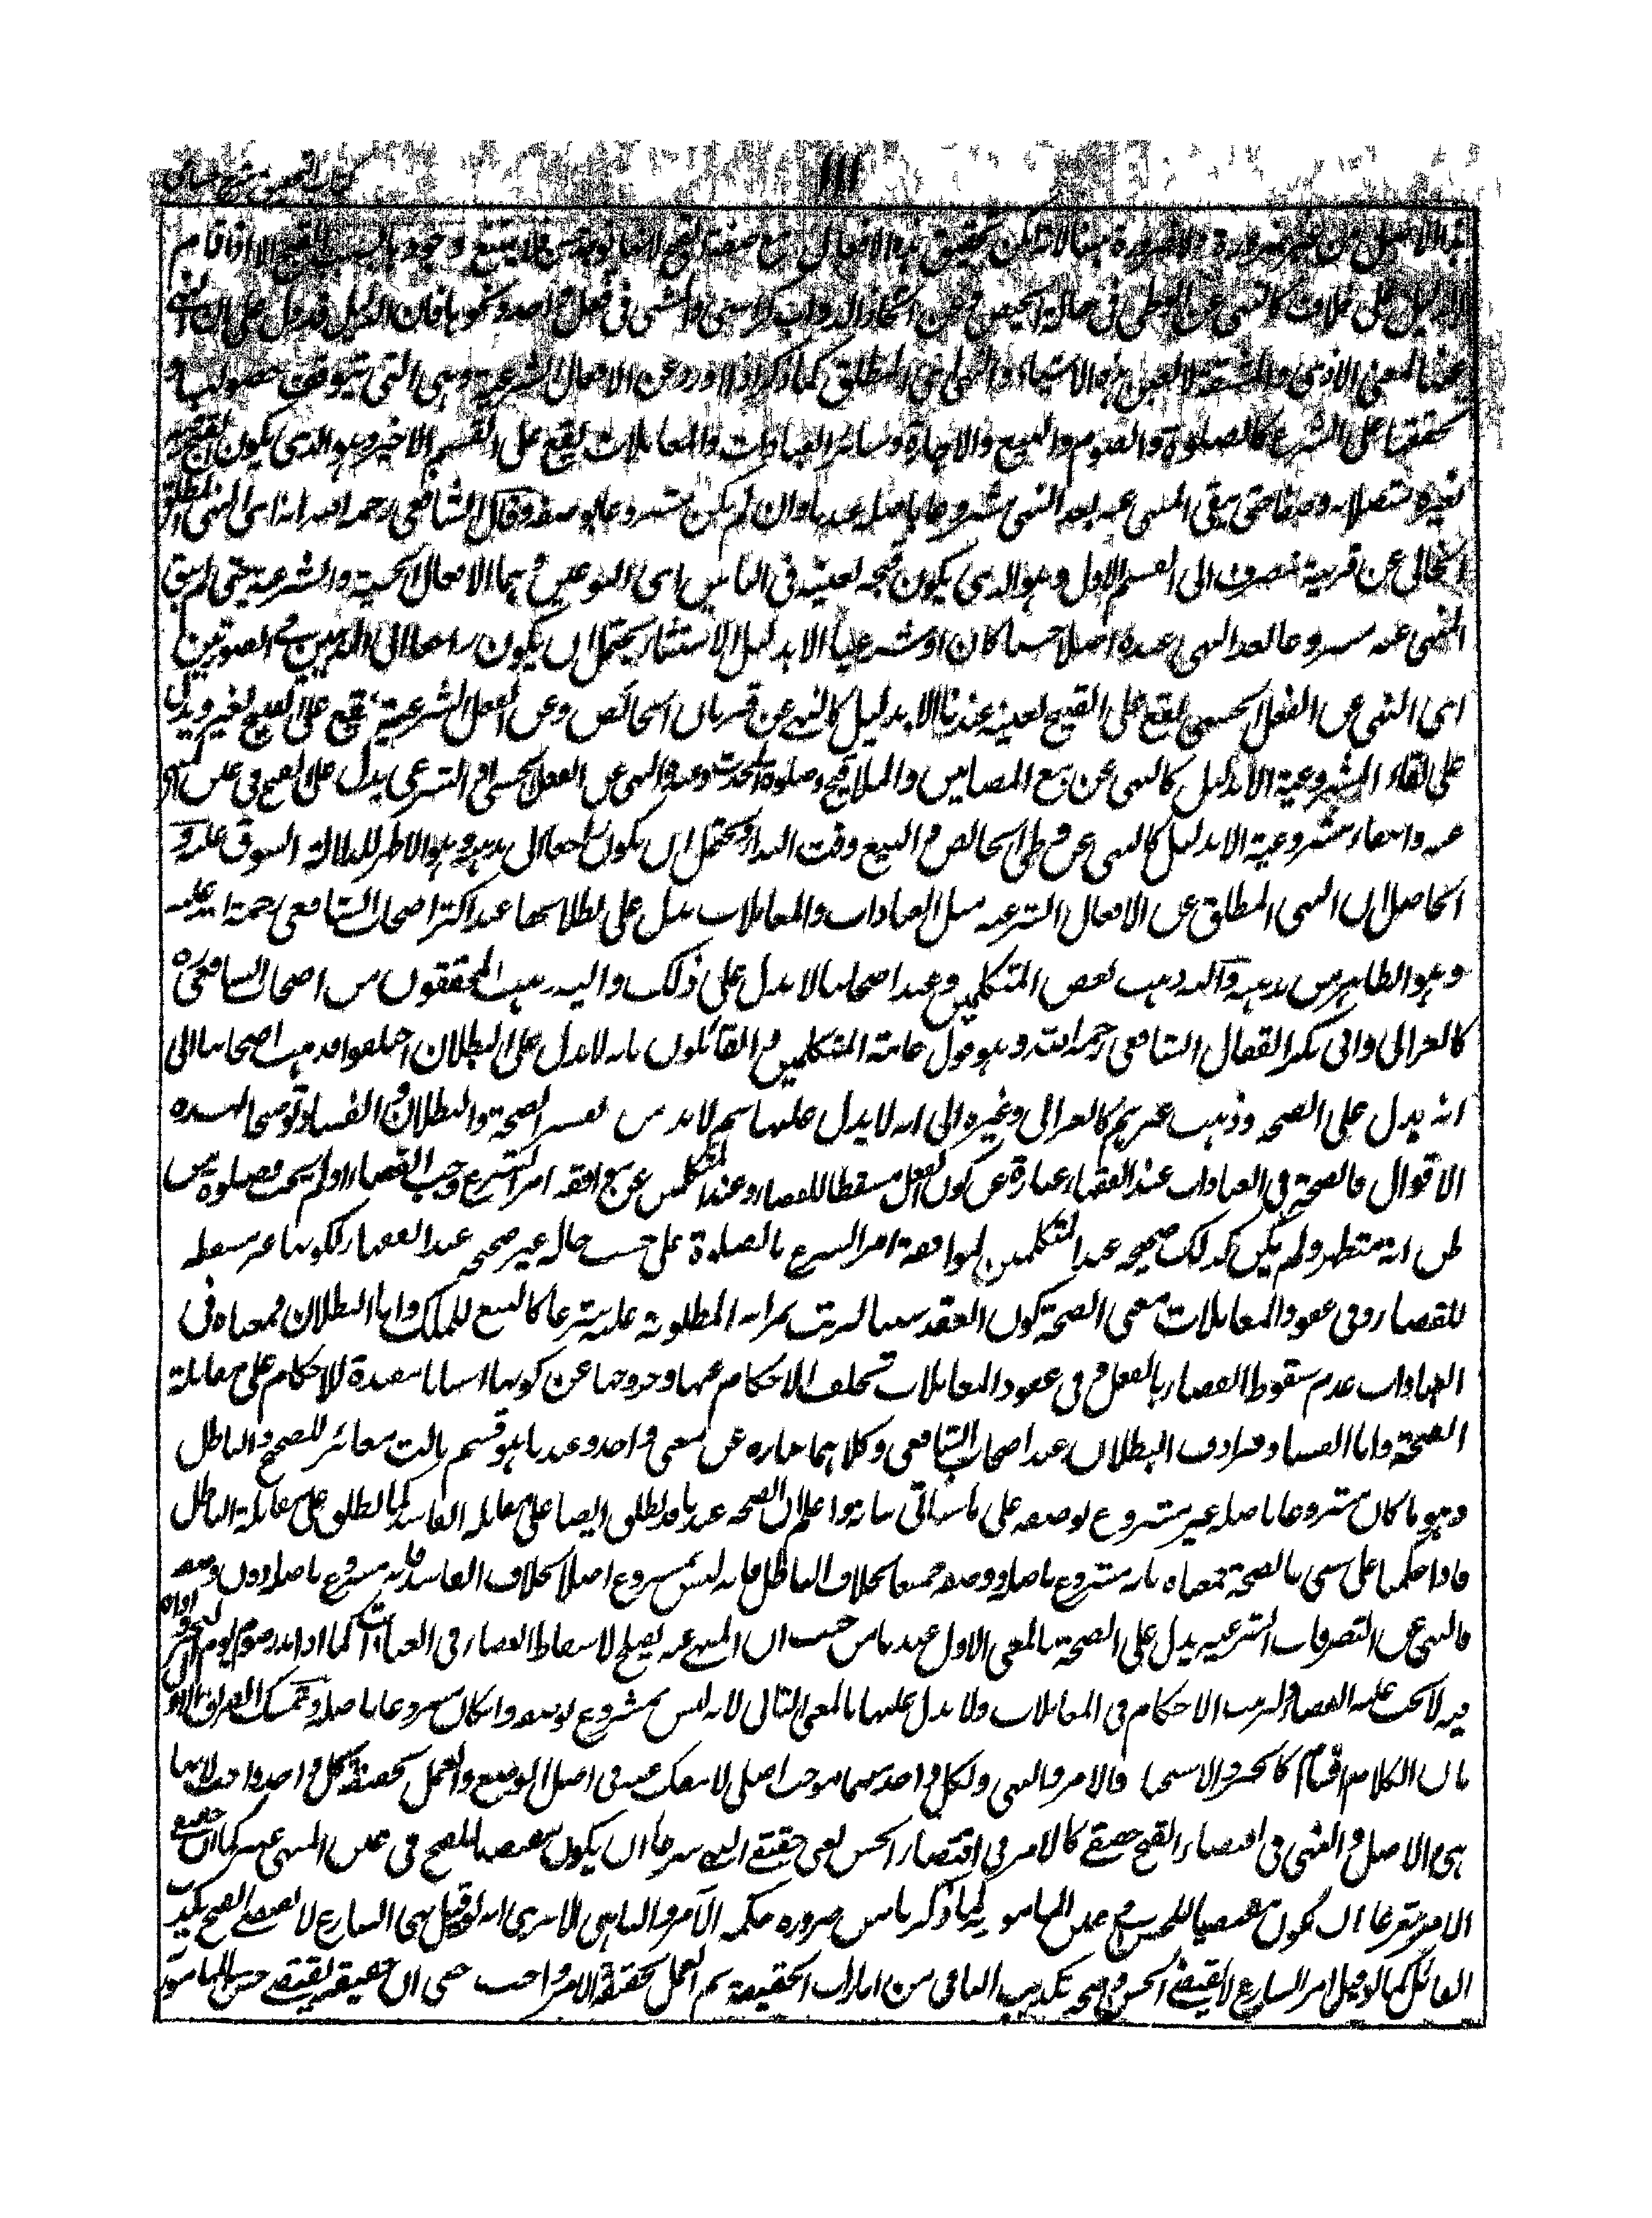 ١١١
كتاب التحقيق شرح حسامى
هذا الاصل من غير ضرورة ولا ضرورة ههنا لانه يمكن تحقيق هذه الافعال مع صفة القبح لانها توجد حسا فلا يمتنع وجودها بسبب القبح الا اذا قام
الدليل على خلافه كالنهى عن الوطى فى حالة الحيض وعن اتخاذ الدواب كراسى والمشى فى نعل واحد ونحوها فان الدليل قد دل على ان النهى
عنها لمعنى الاذى والمشقة لا لعين هذه الاشياء والنهى المطلق كما ذكر اذا ورد عن الافعال الشرعية وهى التى يتوقف حصولها و
تحققها على الشرع كالصلوة والصوم والبيع والاجارة وسائر العبادات والمعاملات يقع على القسم الاخير وهو الذى يكون القبح فيه
لغيره متصلا به وصفا حتى يبقى المنهى عنه بعد النهى مشروعا باصله عندنا وان لم يكن مشروعا بوصفه وقال الشافعى رحمه الله انه اى النهى المطلق
الخالى عن قرينة تصرف الى القسم الاول وهو الذى يكون قبحه لعينه فى البابين اى النوعين وهما الافعال الحسية والشرعية حتى لم يبق
المنهى عنه مشروعا بعد النهى عنده اصلا حسيا كان او شرعيا الا بدليل الاستثناء يحتمل ان يكون راجعا الى المذهبين فى الصورتين
اى النهى عن الفعل الحسى يقع على القبيح لعينه عندنا الا بدليل كالنهى عن قربان الحائض وعن الفعل الشرعى يقع على القبيح لغيره ويدل
على بقاء المشروعية الا بدليل كالنهى عن بيع المضامين والملاقيح وصلوة المحدث وعنده النهى عن الفعل الحسى والشرعى يدل على القبح فى عين المنهى
عنه وانتفاء مشروعيته الا بدليل كالنهى عن وطى الحائض والبيع وقت النداء ويحتمل ان يكون راجعا الى مذهبه وهو الاظهر لدلالة السوق عليه و
الحاصل ان النهى المطلق عن الافعال الشرعية مثل العبادات والمعاملات يدل على بطلانها عند اكثر اصحاب الشافعى رحمة الله عليه
وهو الظاهر من مذهبه واليه ذهب بعض المتكلمين وعند اصحابنا لا يدل على ذلك واليه ذهب المحققون من اصحاب الشافعى رح
كالغزالى وابى بكر القفال الشاشى رحمه الله وهو قول عامة المتكلمين والقائلون بانه لا يدل على البطلان اختلفوا فذهب اصحابنا الى
انه يدل على الصحة وذهب غيرهم كالغزالى وغيره الى انه لا يدل عليها ثم لا بد من تفسير الصحة والبطلان والفساد توضيحا لهذه
الاقوال فالصحة فى العبادات عند الفقهاء عبارة عن كون الفعل مسقطا للقضاء وعند المتكلمين عن موافقة امر الشرع وجب القضاء او لم يجب فصلوة من
ظن انه متطهر ولم يكن كذلك صحيحة عند المتكلمين لموافقة امر الشرع بالصلوة على حسب حاله غير صحيحة عند الفقهاء لكونها غير مسقطة
للقضاء وفى عقود المعاملات معنى الصحة كون العقد سببا لترتب ثمراته المطلوبة عليه شرعا كالبيع للملك واما البطلان فمعناه فى
العبادات عدم سقوط القضاء بالفعل وفى عقود المعاملات تخلف الاحكام عنها وخروجها عن كونها اسبابا مفيدة للاحكام على مقابلة
الصحة واما الفساد فيرادف البطلان عند اصحاب الشافعى وكلاهما عبارة عن معنى واحد وعندنا هو قسم ثالث مغائر للصحيح والباطل
وهو ما كان مشروعا باصله غير مشروع بوصفه على ما سياتى بيانه واعلم ان الصحة عندنا قد يطلق ايضا على مقابلة الفاسد كما يطلق على مقابلة الباطل
فاذا حكمنا على شئ بالصحة فمعناه بانه مشروع باصله ووصفه جميعا بخلاف الباطل فانه ليس بمشروع اصلا بخلاف الفاسد فانه مشروع باصله دون وصفه
فالنهى عن التصرفات الشرعية يدل على الصحة بالمعنى الاول عندنا من حيث ان المنهى عنه يصلح لاسقاط القضاء فى العبادات كما اذا نذر صوم يوم النحر واداه
فيه لا يجب عليه القضاء ولترتب الاحكام فى المعاملات ولا يدل عليها بالمعنى الثانى لانه ليس بمشروع بوصفه وان كان مشروعا باصله وتمسك الفريق الاول
بان الكلام اقسام كالخبر والاستخبار والامر والنهى ولكل واحد منها موجب اصلى لا ينفك عنه فى اصل الوضع والعمل بحقيقة كل واحد واجب لانها
هى الاصل والنهى فى اقتضاء القبح حقيقى كالامر فى اقتضاء الحسن يعنى حقيقة النهى شرعا ان يكون مقتضيا للقبح فى عين المنهى عنه كما ان حقيقة
الامر شرعا ان يكون مقتضيا للحسن فى عين المامور به لما ذكرنا من ضرورة حكمة الآمر والناهى الا ترى انه لو قيل نهى الشارع لا يقتضى القبح يكذب
القائل كما لو قيل امر الشارع لا يقتضى الحسن وصحة تكذيب النافى من امارات الحقيقة ثم العمل بحقيقة الامر واجب حتى ان حقيقته يقتضى حسن المامور